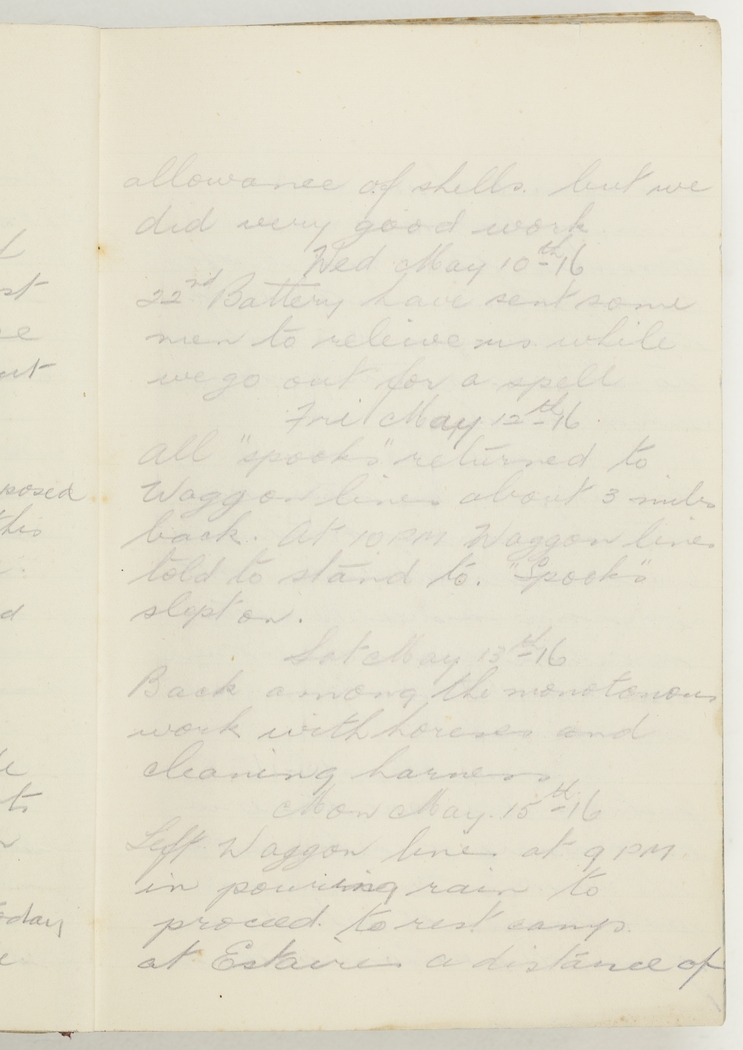 allowance of shells. but we
did very good work
Wed May 10th-16
22nd Battery have sent some
men to releive us while
we go out for a spell
Fri May 12th-16.
All "spooks" returned to
Waggon lines about 3 miles
back. At 10 PM Waggon lines
told to stand to. "Spooks"
slept on.
Sat May 13th-16
Back among the monotonous
work with horses and
cleaning harness
Mon May. 15th-16
Left Waggon lines at 9 PM
in pouring rain to
proceed to rest camp.
at Estaires a distance of
posed
this
today